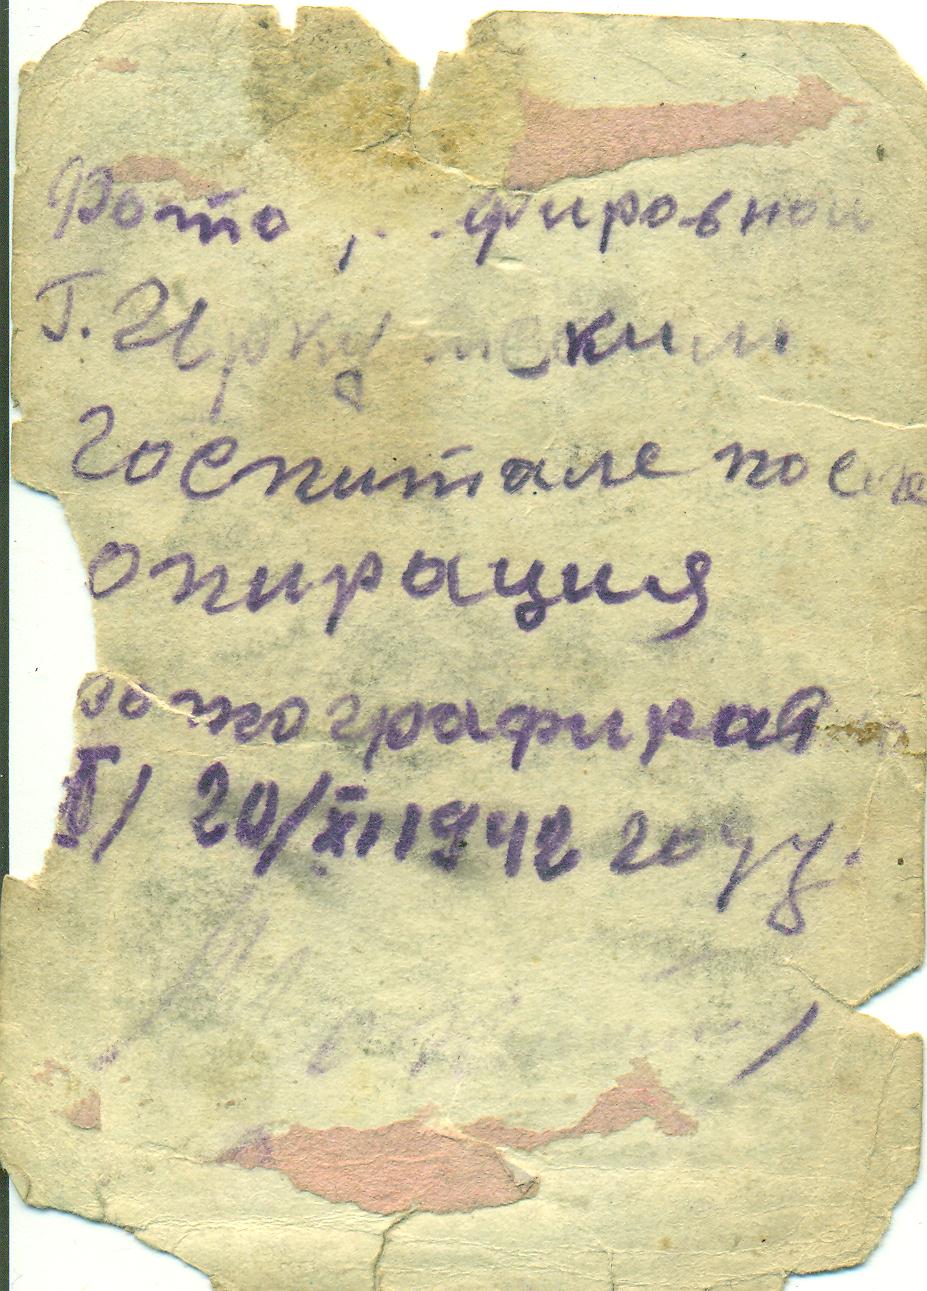 Фото фировной
Г. Иркутским
Госпитале после
опирация
фотографирав
20/XI 1942 году.